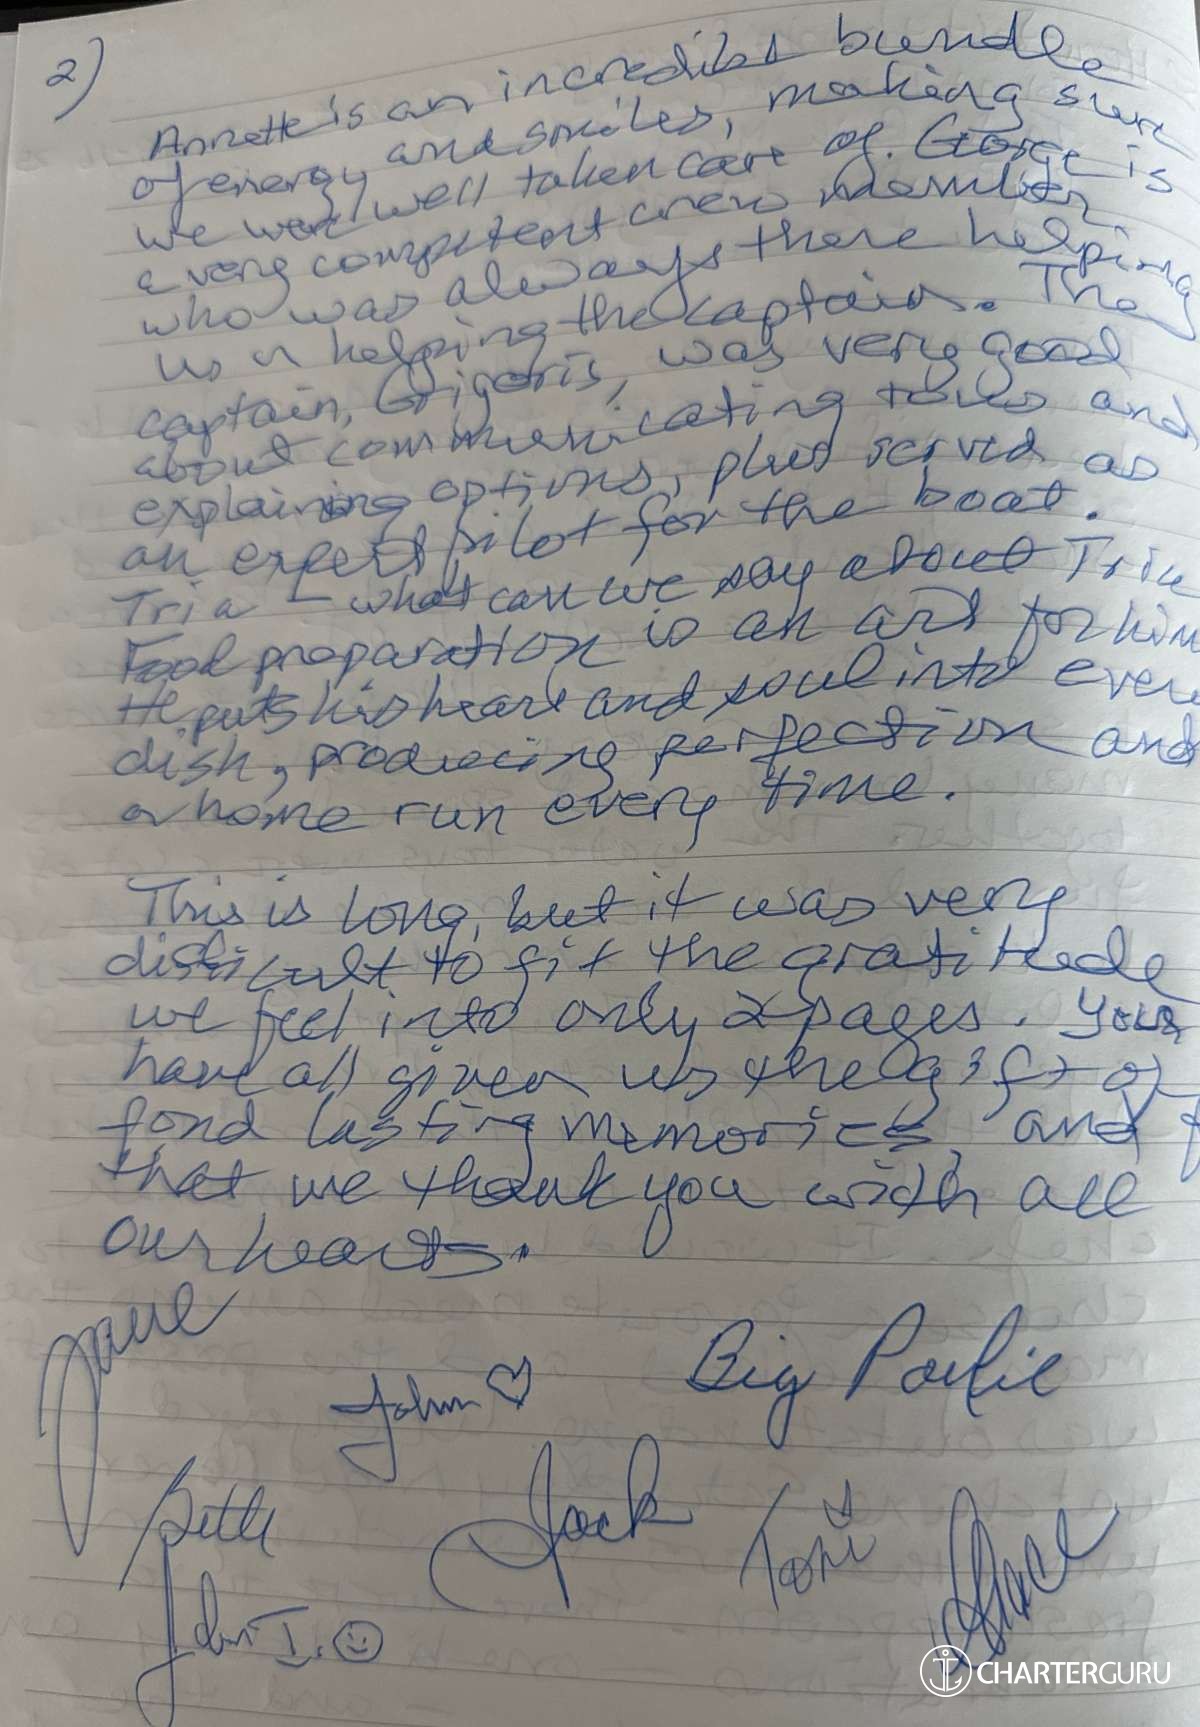 2)
Annette is an incredible bundle
of energy and smiles, making sure
we were well taken care of. George is
a very competent crew member
who was always there helping
us n helping the captain. The
captain, Grigoris, was very good
about communicating and
explaining options, plus served as
an expert pilot for the boat.
Tria – what can we say about Tria
Food preparation is an art for him
He puts his heart and soul into every
dish, producing perfection and
a home run every time.
This is long, but it was very
difficult to fit the gratitude
we feel into only 2 pages. You
have all given us the gift of
fond lasting memories, and f
that we thank you with all
our hearts.
Jane
John ♡
Big Paulie
Beth
Jack
Toni
Grace
John I. ☺
CHARTERGURU